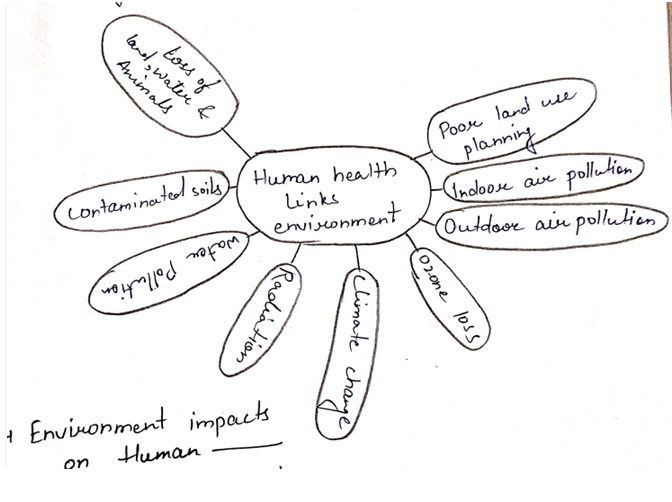 Loss of
land, water &
Animals
Poor land use
planning
Human health
links
environment
Indoor air pollution
Contaminated soils
Outdoor air pollution
Water Pollution
Radiation
Climate change
Ozone loss
Environment impacts
on Human